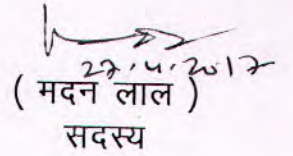 27.4.2017
( मदन लाल )
सदस्य